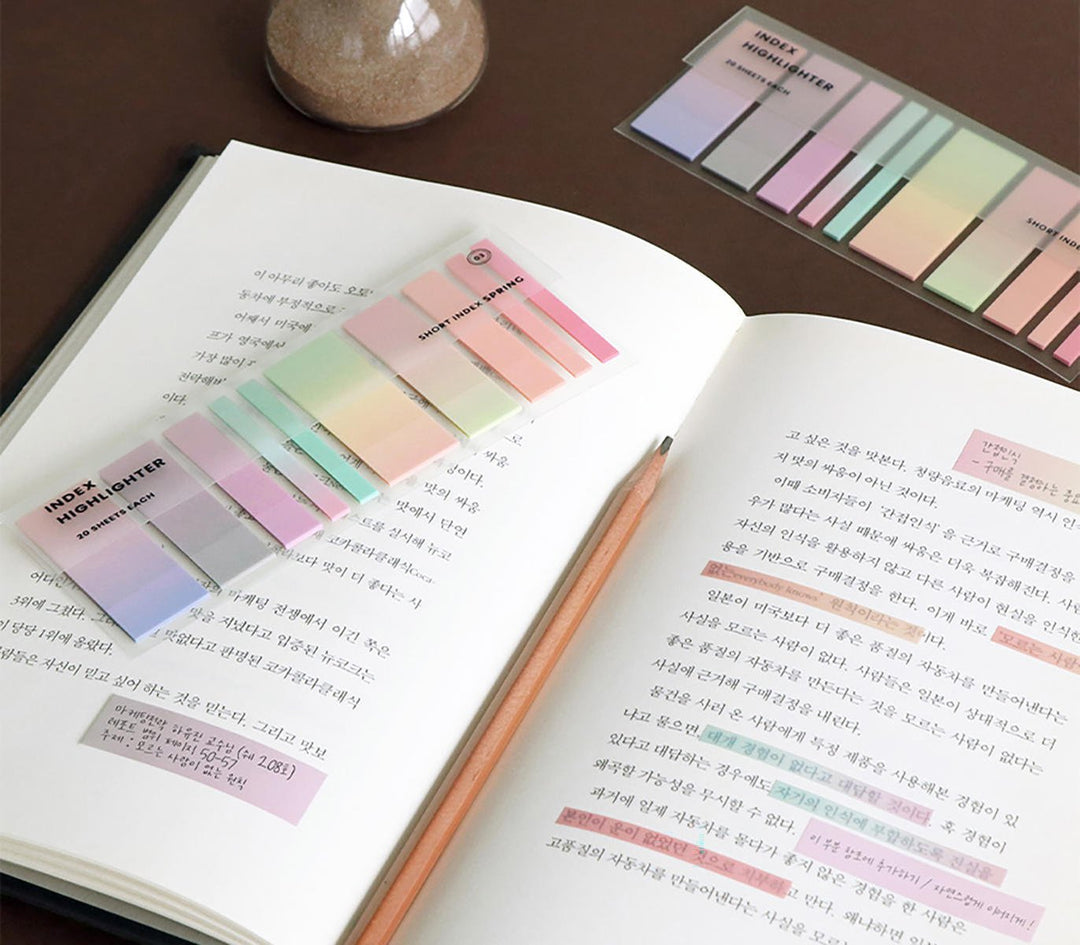 INDEX
HIGHLIGHTER
20 SHEETS EACH
SHORT INDE
INDEX
HIGHLIGHTER
20 SHEETS EACH
SHORT INDEX SPRING
03
이 아무리 좋아도 오토
동차에 부정적으로
어째서 미국에
프가 영국에서
가장 많이
전락해버
이다.
싸움
맛의 싸움
맛에서 단연
트를 실시해 뉴코
코카콜라클래식(Coca-
보다 맛이 더 좋다는 시
마케팅 전쟁에서 이긴 쪽은
3위에 그쳤다.
맛을 지녔다고 입증된 뉴코크는
당당 1위에 올랐다.
맛없다고 판명된 코카콜라클래식
람들은 자신이 믿고 싶어 하는 것을 믿는다. 그리고 맛보
마케팅전략 하우진 교수님 (제 208호)
레포트 범위 페이지 50-57
주제 : 모르는 사람이 없는 원칙
고 싶은 것을 맛본다. 청량음료의 마케팅 역시 인
지 맛의 싸움이 아닌 것이다.
간접인식
- 구매를 결정하는 중요
이때 소비자들이 '간접인식'을 근거로 구매결정을
우가 많다는 사실 때문에 싸움은 더욱 복잡해진다. 사람
자신의 인식을 활용하지 않고 다른 사람이 현실을 인식한
용을 기반으로 구매결정을 한다. 이게 바로 '모르는 사람
없는everybody knows' 원칙이라는 것이다.
일본이 미국보다 더 좋은 품질의 자동차를 만들어낸다는
사실을 모르는 사람이 없다. 사람들은 일본이 상대적으로 더
좋은 품질의 자동차를 만든다는 것을 모르는 사람이 없다는
사실에 근거해 구매결정을 내린다.
물건을 사러 온 사람에게 특정 제품을 사용해본 경험이 있
냐고 물으면, 대개 경험이 없다고 대답할 것이다. 혹 경험이
있다고 대답하는 경우에도 자기의 인식에 부합하도록 진실을
왜곡할 가능성을 무시할 수 없다.
이 부분 참조에 추가하기 / 자연스럽게 이어지게!
과거에 일제 자동차를 몰다가 좋지 않은 경험을 한 사람은
본인이 운이 없었던 것으로 치부하고 만다. 왜냐하면 일본
고품질의 자동차를 만들어낸다는 사실을 모르